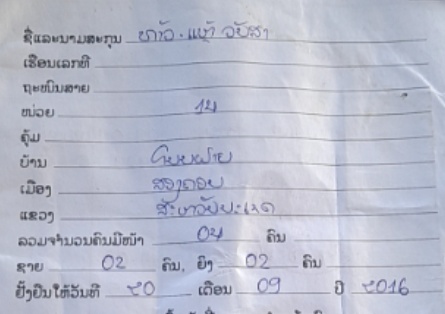 ຊື່ແລະນາມສະກຸນ ທ້າວ.
ເຮືອນເລກທີ
ຖະໜົນສາຍ
ໜ່ວຍ 14
ຄຸ້ມ
ບ້ານ
ເມືອງ ສອງຄອນ
ແຂວງ ສະຫວັນນະເຂດ
ລວມຈຳນວນຄົນມີໜ້າ 04 ຄົນ
ຊາຍ 02 ຄົນ, ຍິງ 02 ຄົນ
ຢັ້ງຢືນໃຫ້ວັນທີ ໒0 ເດືອນ 09 ປີ ໒016